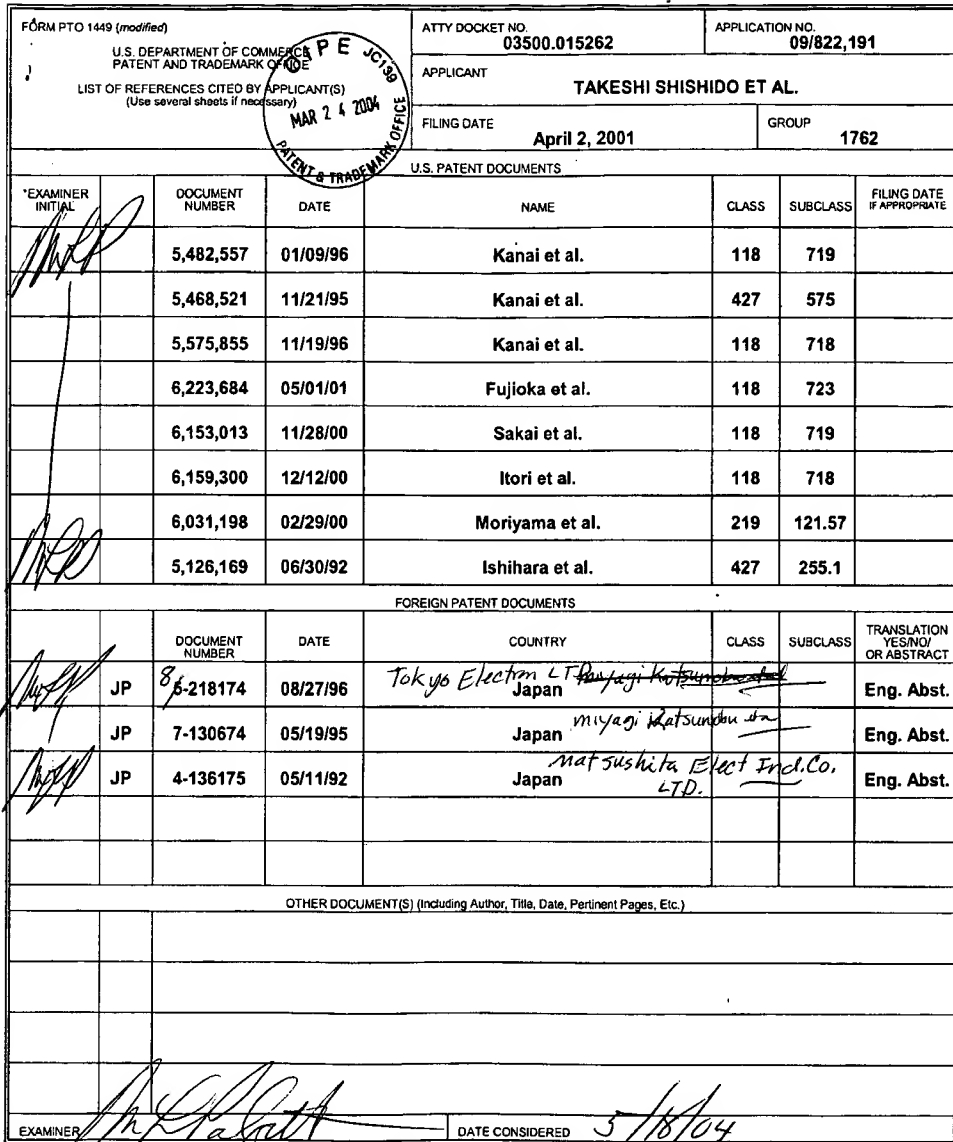 FORM PTO 1449 (modified)
U.S. DEPARTMENT OF COMMERCE
PATENT AND TRADEMARK OFFICE
LIST OF REFERENCES CITED BY APPLICANT(S)
(Use several sheets if necessary)
OIPE JC139
MAR 24 2004
PATENT & TRADEMARK OFFICE
ATTY DOCKET NO.
03500.015262
APPLICATION NO.
09/822,191
APPLICANT
TAKESHI SHISHIDO ET AL.
FILING DATE
April 2, 2001
GROUP
1762
U.S. PATENT DOCUMENTS
*EXAMINER INITIAL DOCUMENT NUMBER DATE NAME CLASS SUBCLASS FILING DATE IF APPROPRIATE
5,482,557 01/09/96 Kanai et al. 118 719
5,468,521 11/21/95 Kanai et al. 427 575
5,575,855 11/19/96 Kanai et al. 118 718
6,223,684 05/01/01 Fujioka et al. 118 723
6,153,013 11/28/00 Sakai et al. 118 719
6,159,300 12/12/00 Itori et al. 118 718
6,031,198 02/29/00 Moriyama et al. 219 121.57
5,126,169 06/30/92 Ishihara et al. 427 255.1
FOREIGN PATENT DOCUMENTS
DOCUMENT NUMBER DATE COUNTRY CLASS SUBCLASS TRANSLATION YES/NO/ OR ABSTRACT
Tokyo Electron LT
JP 8/6-218174 08/27/96 Japan Eng. Abst.
JP 7-130674 05/19/95 Japan miyagi Katsunobu Eng. Abst.
matsushita Elect Ind. Co. LTD.
JP 4-136175 05/11/92 Japan Eng. Abst.
OTHER DOCUMENT(S) (Including Author, Title, Date, Pertinent Pages, Etc.)
EXAMINER
DATE CONSIDERED 5/18/04